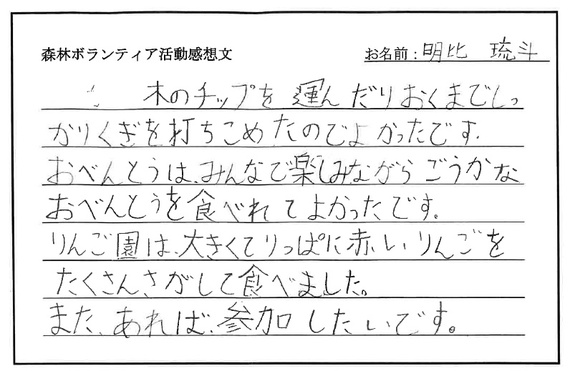 森林ボランティア活動感想文
お名前：明比 琉斗
木のチップを運んだりおくまでしっ
かりくぎを打ちこめたのでよかったです。
おべんとうは、みんなで楽しみながらごうかな
おべんとうを食べれてよかったです。
りんご園は、大きくてりっぱに赤いりんごを
たくさん、さがして食べました。
また、あれば、参加したいです。